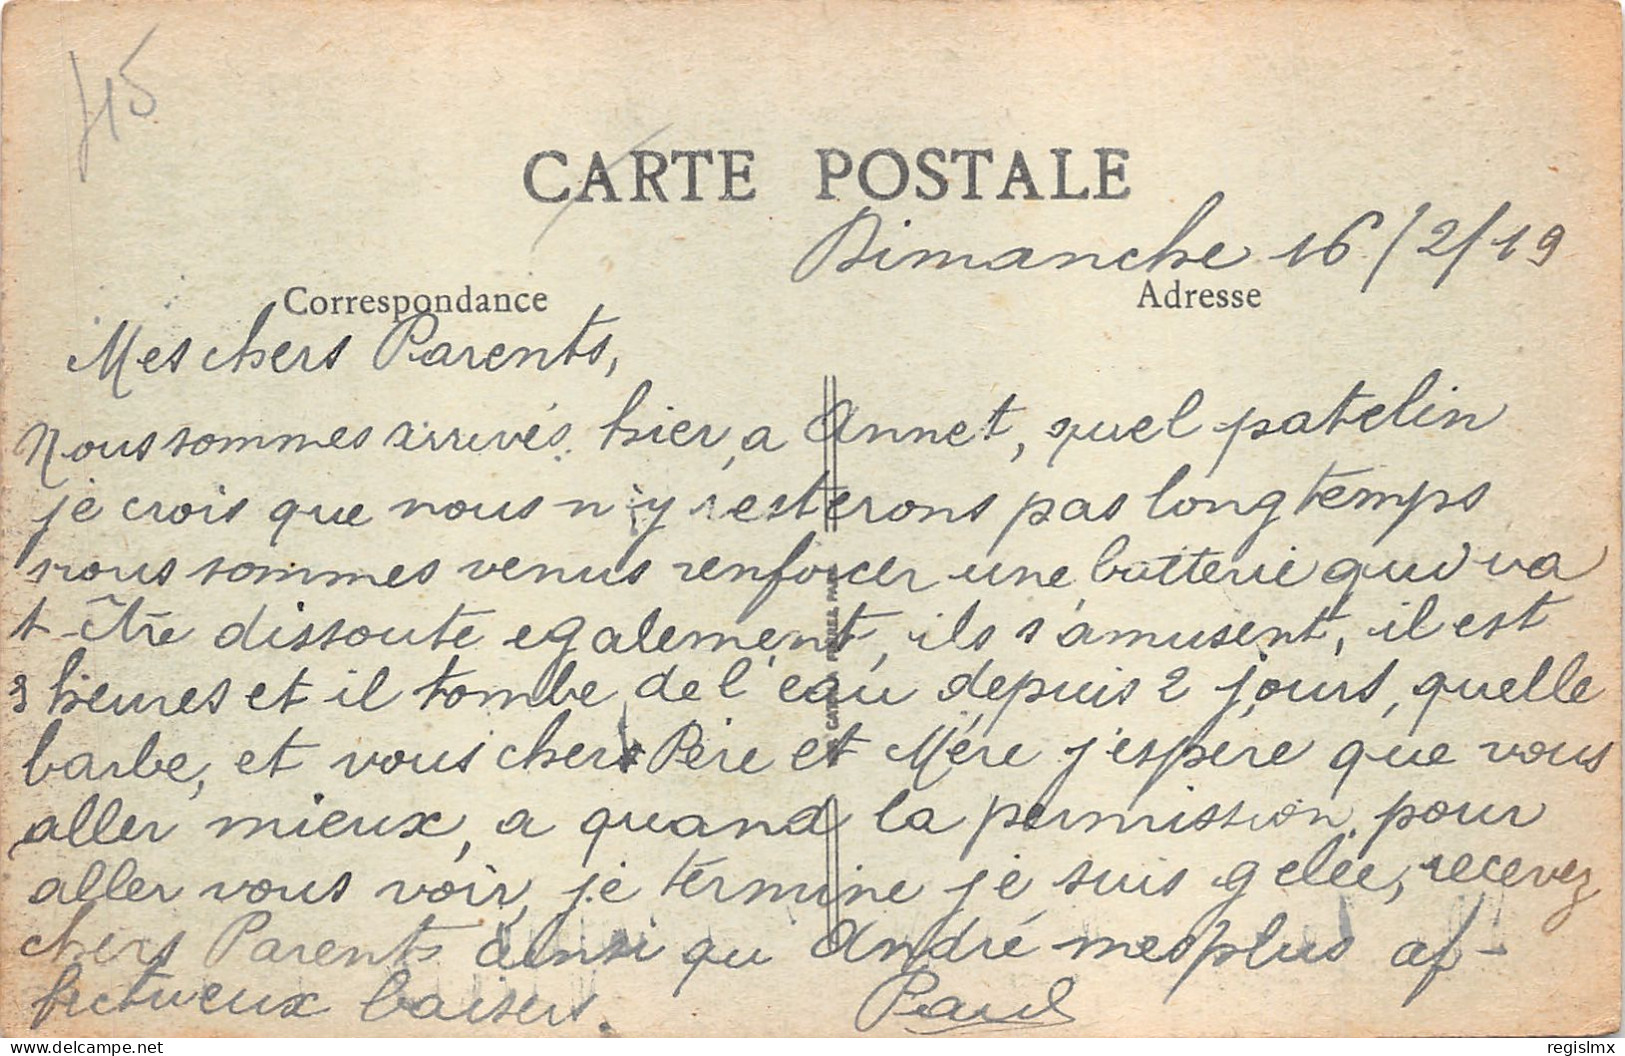 415
CARTE POSTALE
Dimanche 16/2/19
Correspondance
Adresse
Mes chers Parents,
Nous sommes arrivés hier, a Annet, quel patelin
je crois que nous n'y resterons pas longtemps
nous sommes venus renforcer une batterie qui va
t-être dissoute egalement, ils s'amusent, il est
3 heures et il tombe de l'eau depuis 2 jours, quelle
barbe, et vous chers Père et Mère j'espère que vous
aller mieux, a quand la permission pour
aller vous voir, je termine je suis gelée, recevez
chers Parents ainsi qu André mes plus af-
fectueux baisers. Paul
regislmx
delcampe.net